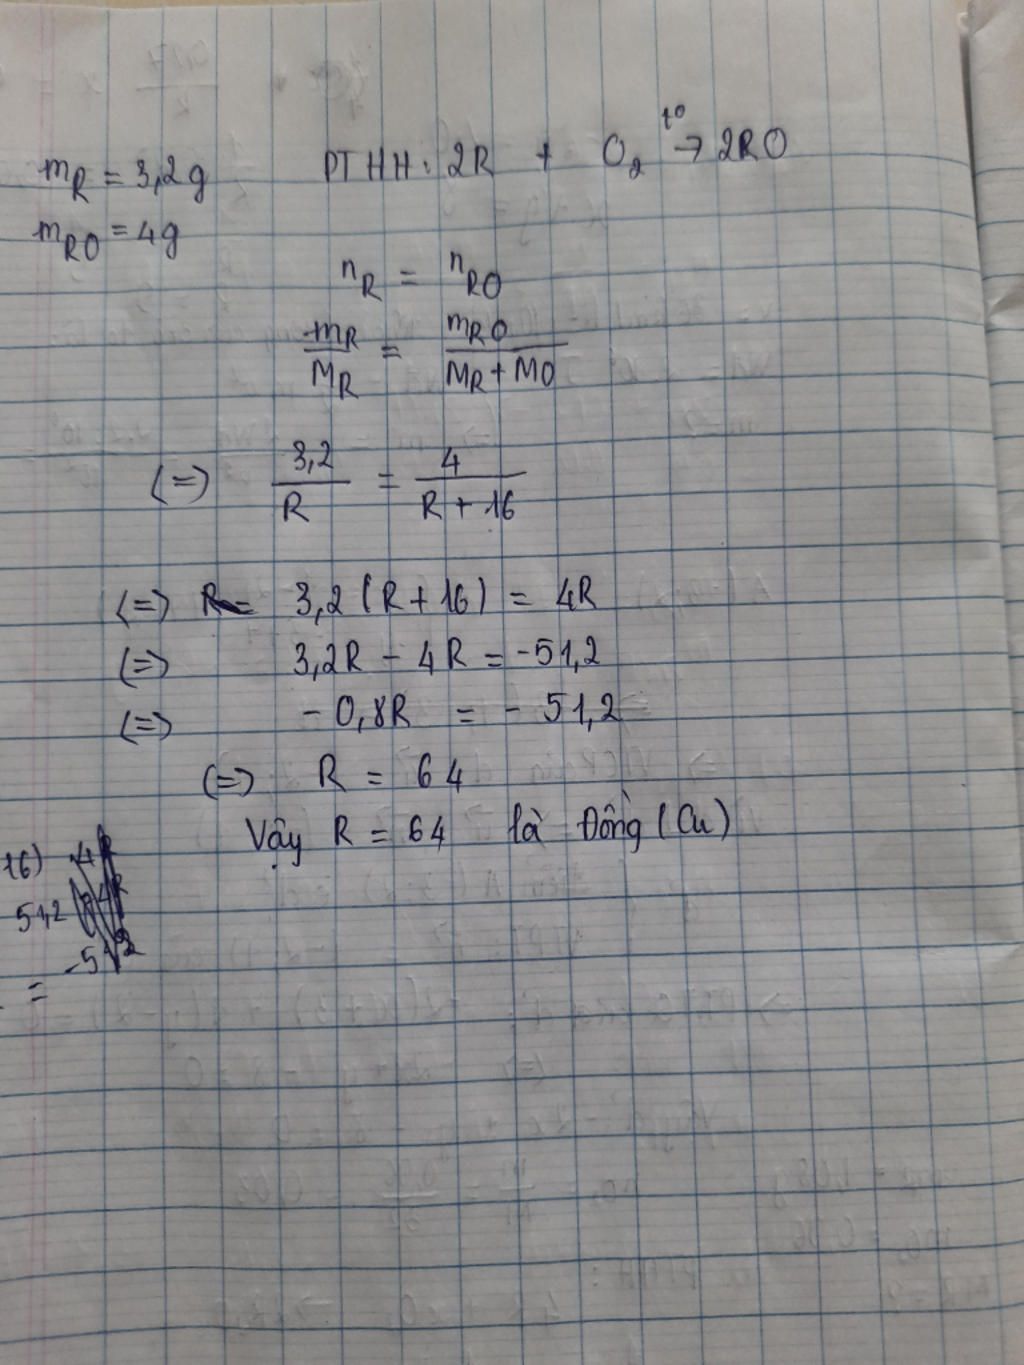 m_R = 3,2g PTHH: 2R + O₂ →(t⁰) 2RO
m_RO = 4g
n_R = n_RO
m_R / M_R = m_RO / (M_R + MO)
(=) 3,2 / R = 4 / (R + 16)
(=) 3,2 (R + 16) = 4R
(=) 3,2R - 4R = -51,2
(=) - 0,8R = - 51,2
(=) R = 64
Vậy R = 64 là Đồng (Cu)
16)
51,2
=